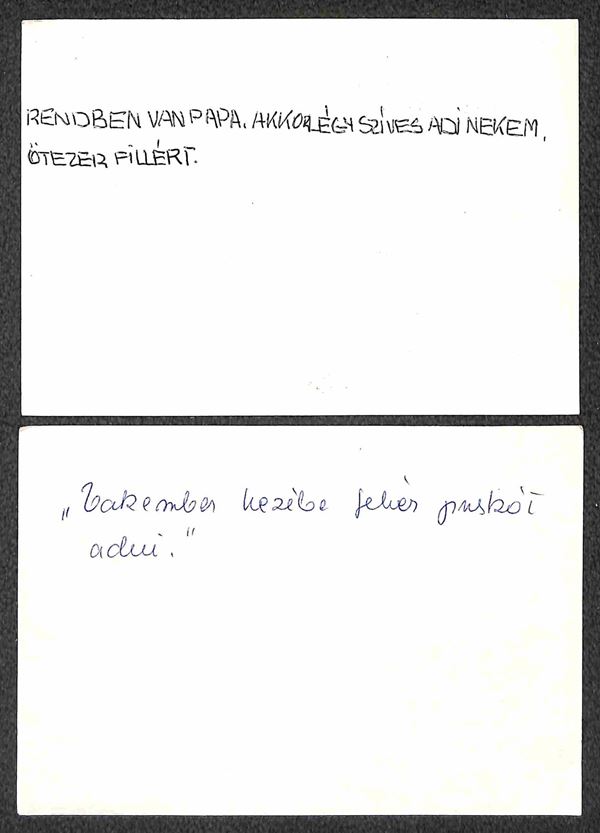 RENDBEN VAN PAPA. AKKOR LÉGY SZÍVES ADI NEKEM,
ÖTEZER FILLÉRT.
„Vakember kezébe fehér puskát
adni."